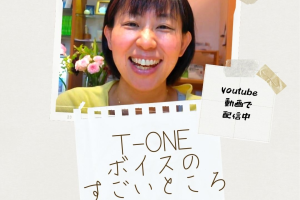 youtube
動画で
配信中
T-ONE
ボイスの
すごいところ